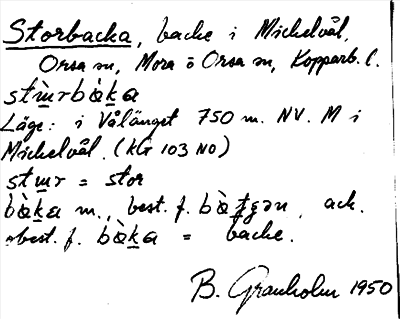 Storbacka, backe i Mickelvål,
Orsa sn, Mora o Orsa sn, Kopparb. l.
stɯ̀rbàka
Läge: i Vålänget 750 m. NV. M i
Mickelvål. (KG 103 NO)
stɯr = stor
bàka m., best. f. ack.
best. f. bàka = backe.
B. Granholm 1950